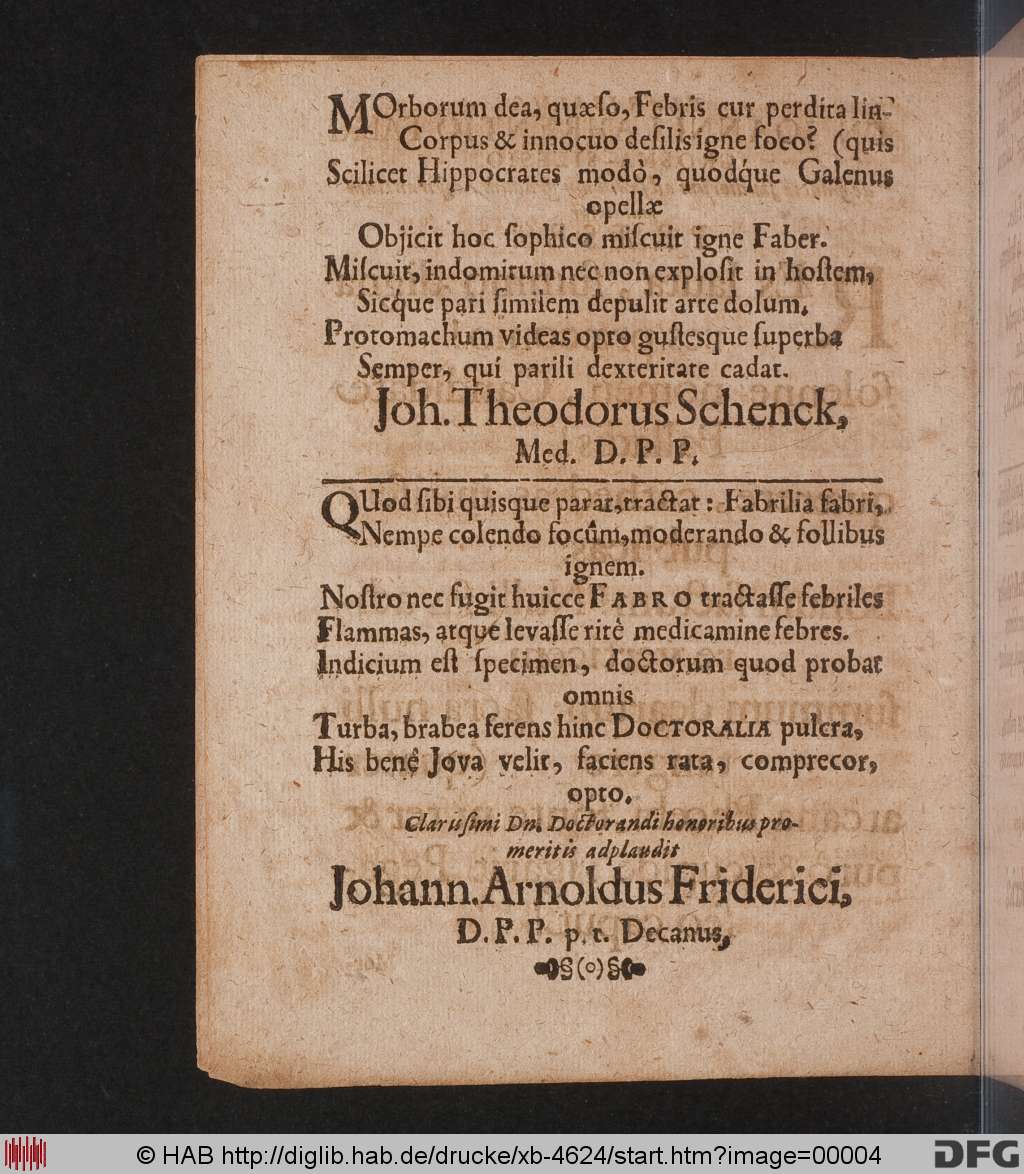 MOrborum dea, quæſo, Febris cur perdita lin-
Corpus & innocuo deſilis igne foco? (quis
Scilicet Hippocrates modò, quodq́ue Galenus
opellæ
Objicit hoc ſophico miſcuit igne Faber.
Miſcuit, indomitum nec non exploſit in hoſtem,
Sicq́ue pari ſimilem depulit arte dolum.
Protomachum videas opto guſtesque ſuperba
Semper, quí parili dexteritate cadat.
Joh. Theodorus Schenck,
Med. D. P. P.
QUod ſibi quisque parat, tractat: Fabrilia fabri,
Nempe colendo focûm, moderando & follibus
ignem.
Noſtro nec fugit huicce FABRO tractaſſe febriles
Flammas, atque levaſſe ritè medicamine febres.
Indicium eſt ſpecimen, doctorum quod probat
omnis
Turba, brabea ferens hinc DOCTORALIA pulcra,
His benè Jova velit, faciens rata, comprecor,
opto.
Clariſſimi Dn. Doctorandi honoribus pro-
meritis adplaudit
Johann. Arnoldus Friderici,
D. P. P. p. t. Decanus,
§(o)§
© HAB http://diglib.hab.de/drucke/xb-4624/start.htm?image=00004
DFG